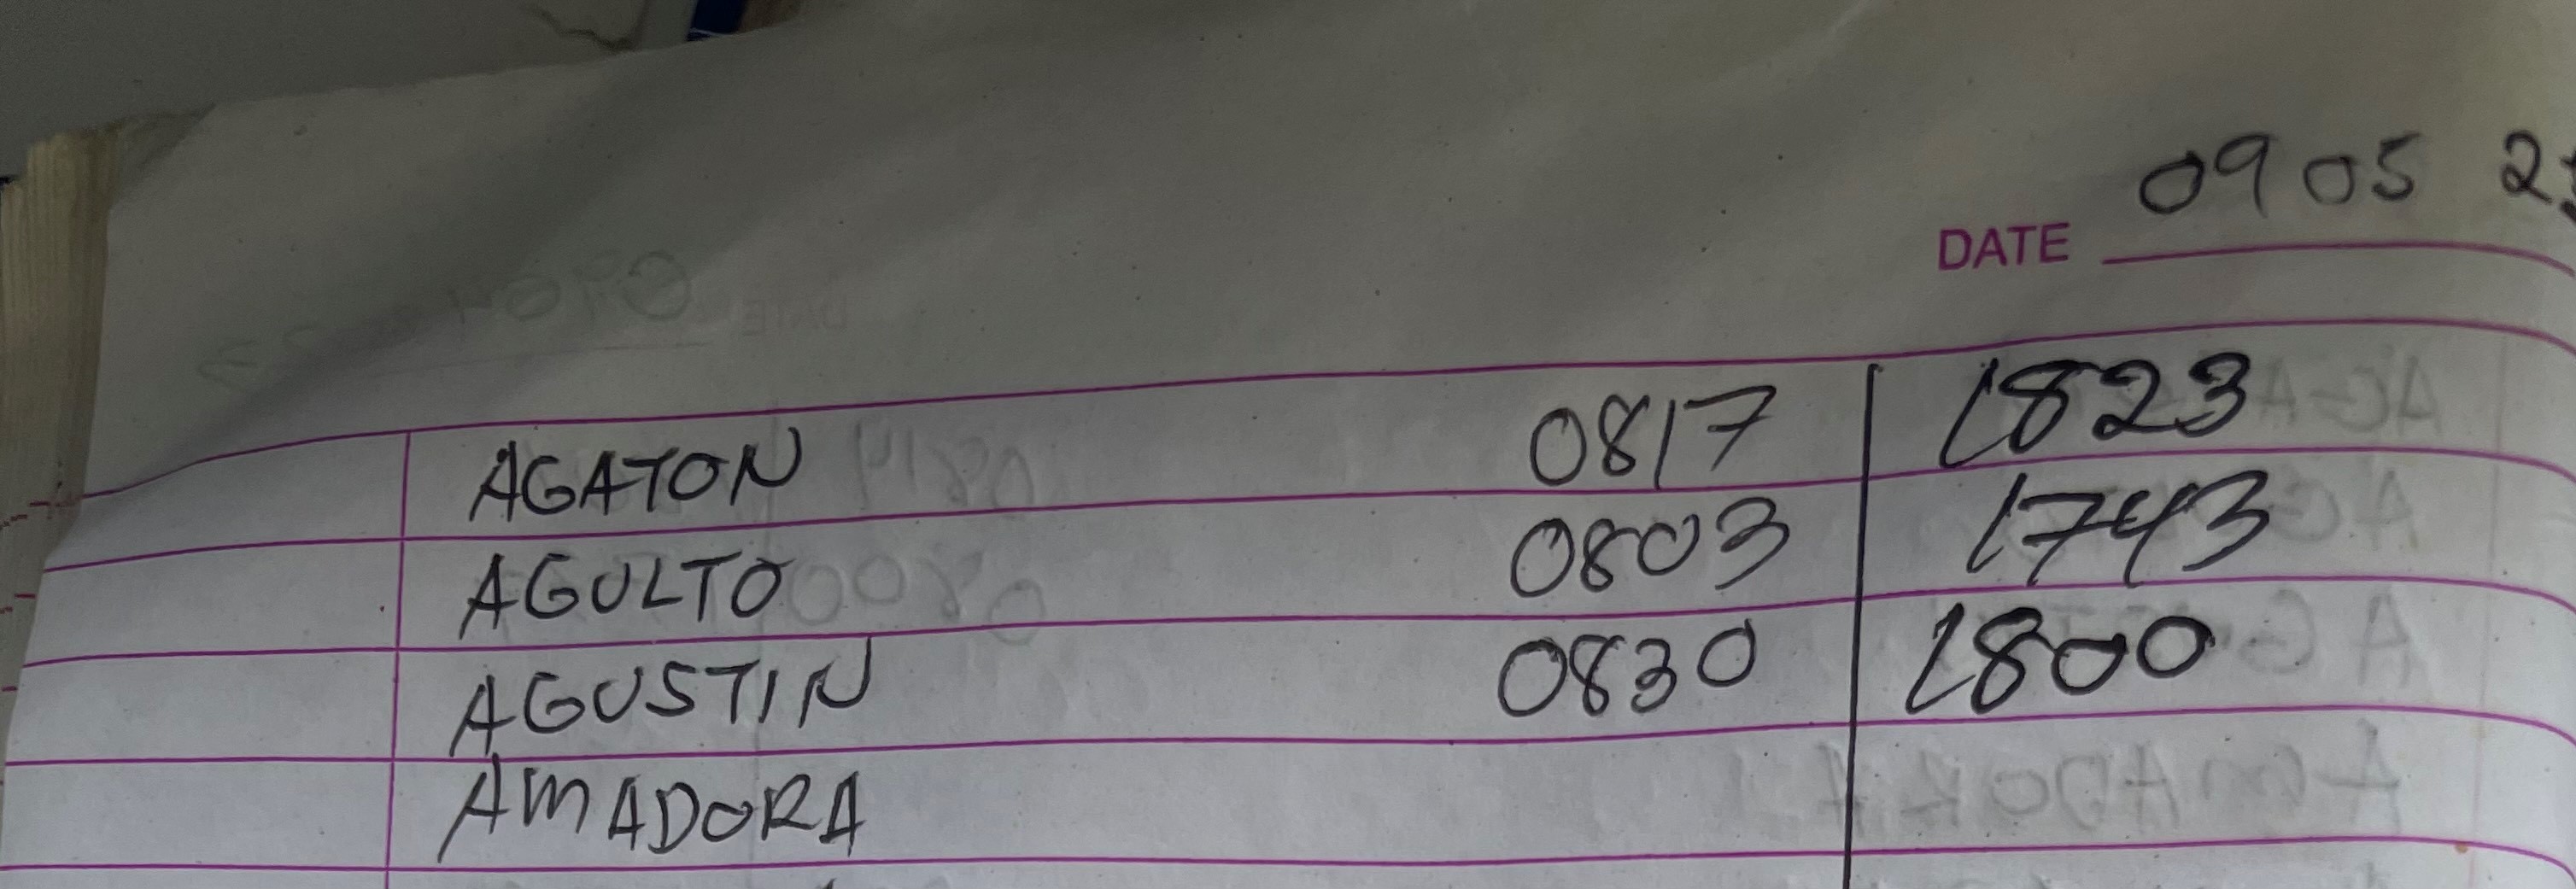 DATE 09 05
AGATON 0817 1823
AGULTO 0803 1743
AGUSTIN 0830 1800
AMADORA